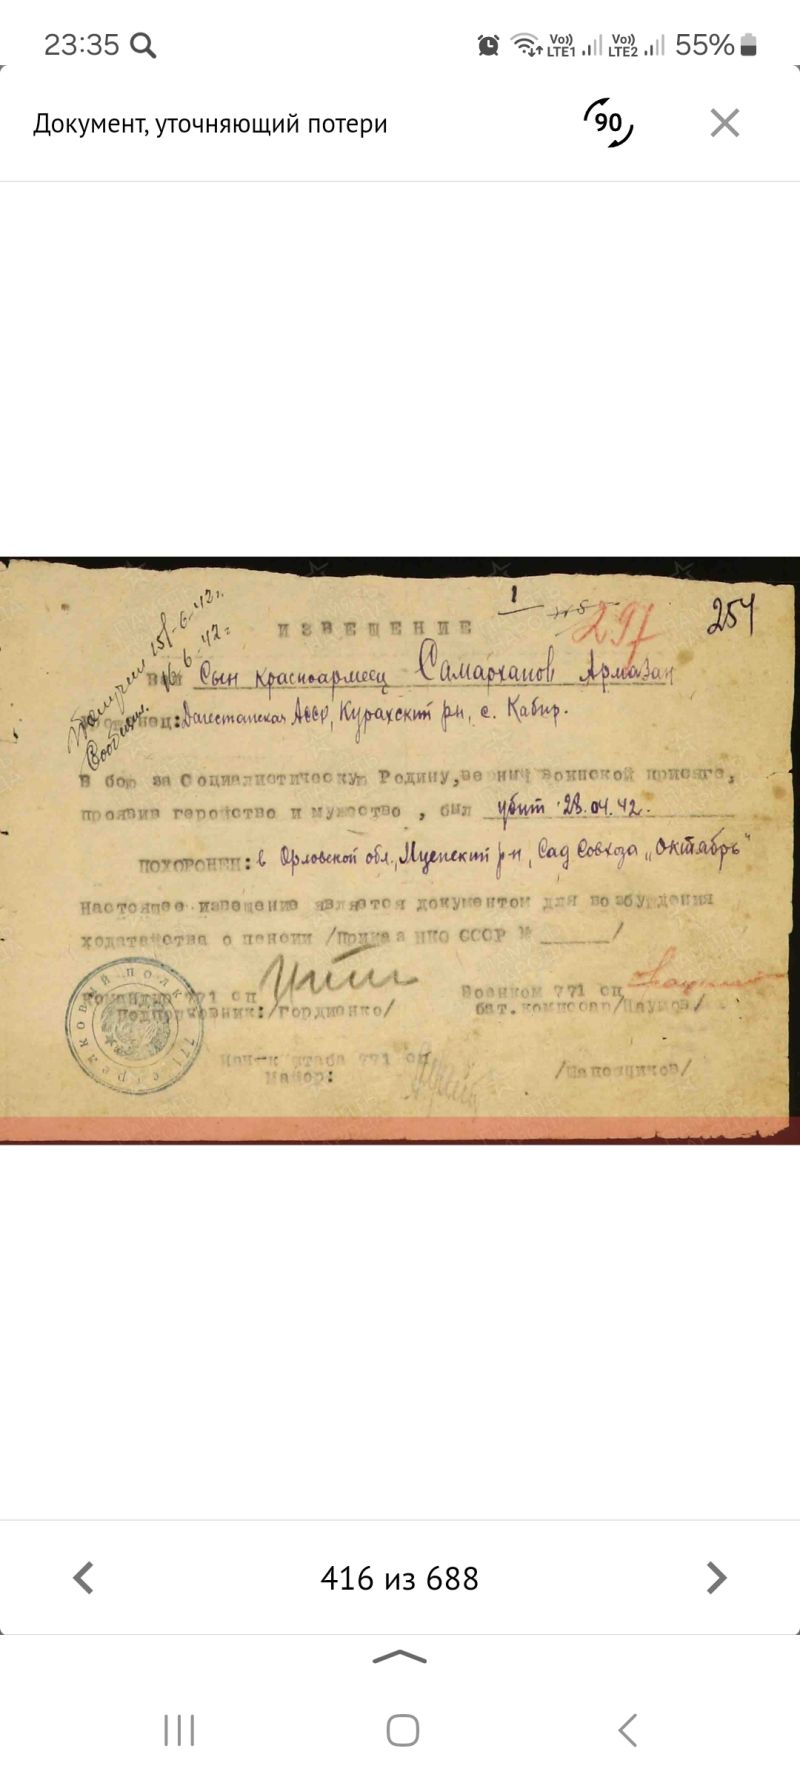 23:35
Vo)) LTE1 Vo)) LTE2 55%
Документ, уточняющий потери
90
1
297
254
ИЗВЕЩЕНИЕ
Получил 15/-6-42г.
Сообщил 16-6-42г.
Ваш Сын красноармеец Самарханов Армазан
Дагестанская АССР, Курахский р-н, с. Кабир.
В бою за Социалистическую Родину, верный воинской присяге,
проявив геройство и мужество, был убит 28.04.42.
ПОХОРОНЕН: в Орловской обл., Мценский р-н, Сад Совхоза „Октябрь"
Настоящее извещение является документом для возбуждения
ходатайства о пенсии /приказ НКО СССР № ______/
Командир 771 сп
Военком 771 сп
подполковник: /Гордиенко/
бат. комиссар/Наумов/
Нач-к штаба 771 сп
Майор:
/Шапошников/
771 СТРЕЛКОВЫЙ ПОЛК
416 из 688